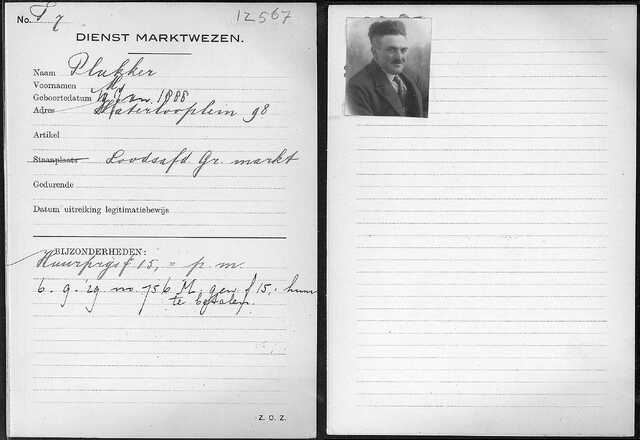 No. T 7 12567
DIENST MARKTWEZEN.
Naam Plukker
Voornamen M.
Geboortedatum Jan. 1888
Adres Waterlooplein 98
Artikel
Staanplaats Loodsafd Gr. markt
Gedurende
Datum uitreiking legitimatiebewijs
BIJZONDERHEDEN:
Huurprijs f 15,= p. m.
6. 9. '29 no 756 M. gew. f 15,- huur
te betalen.
Z. O. Z.